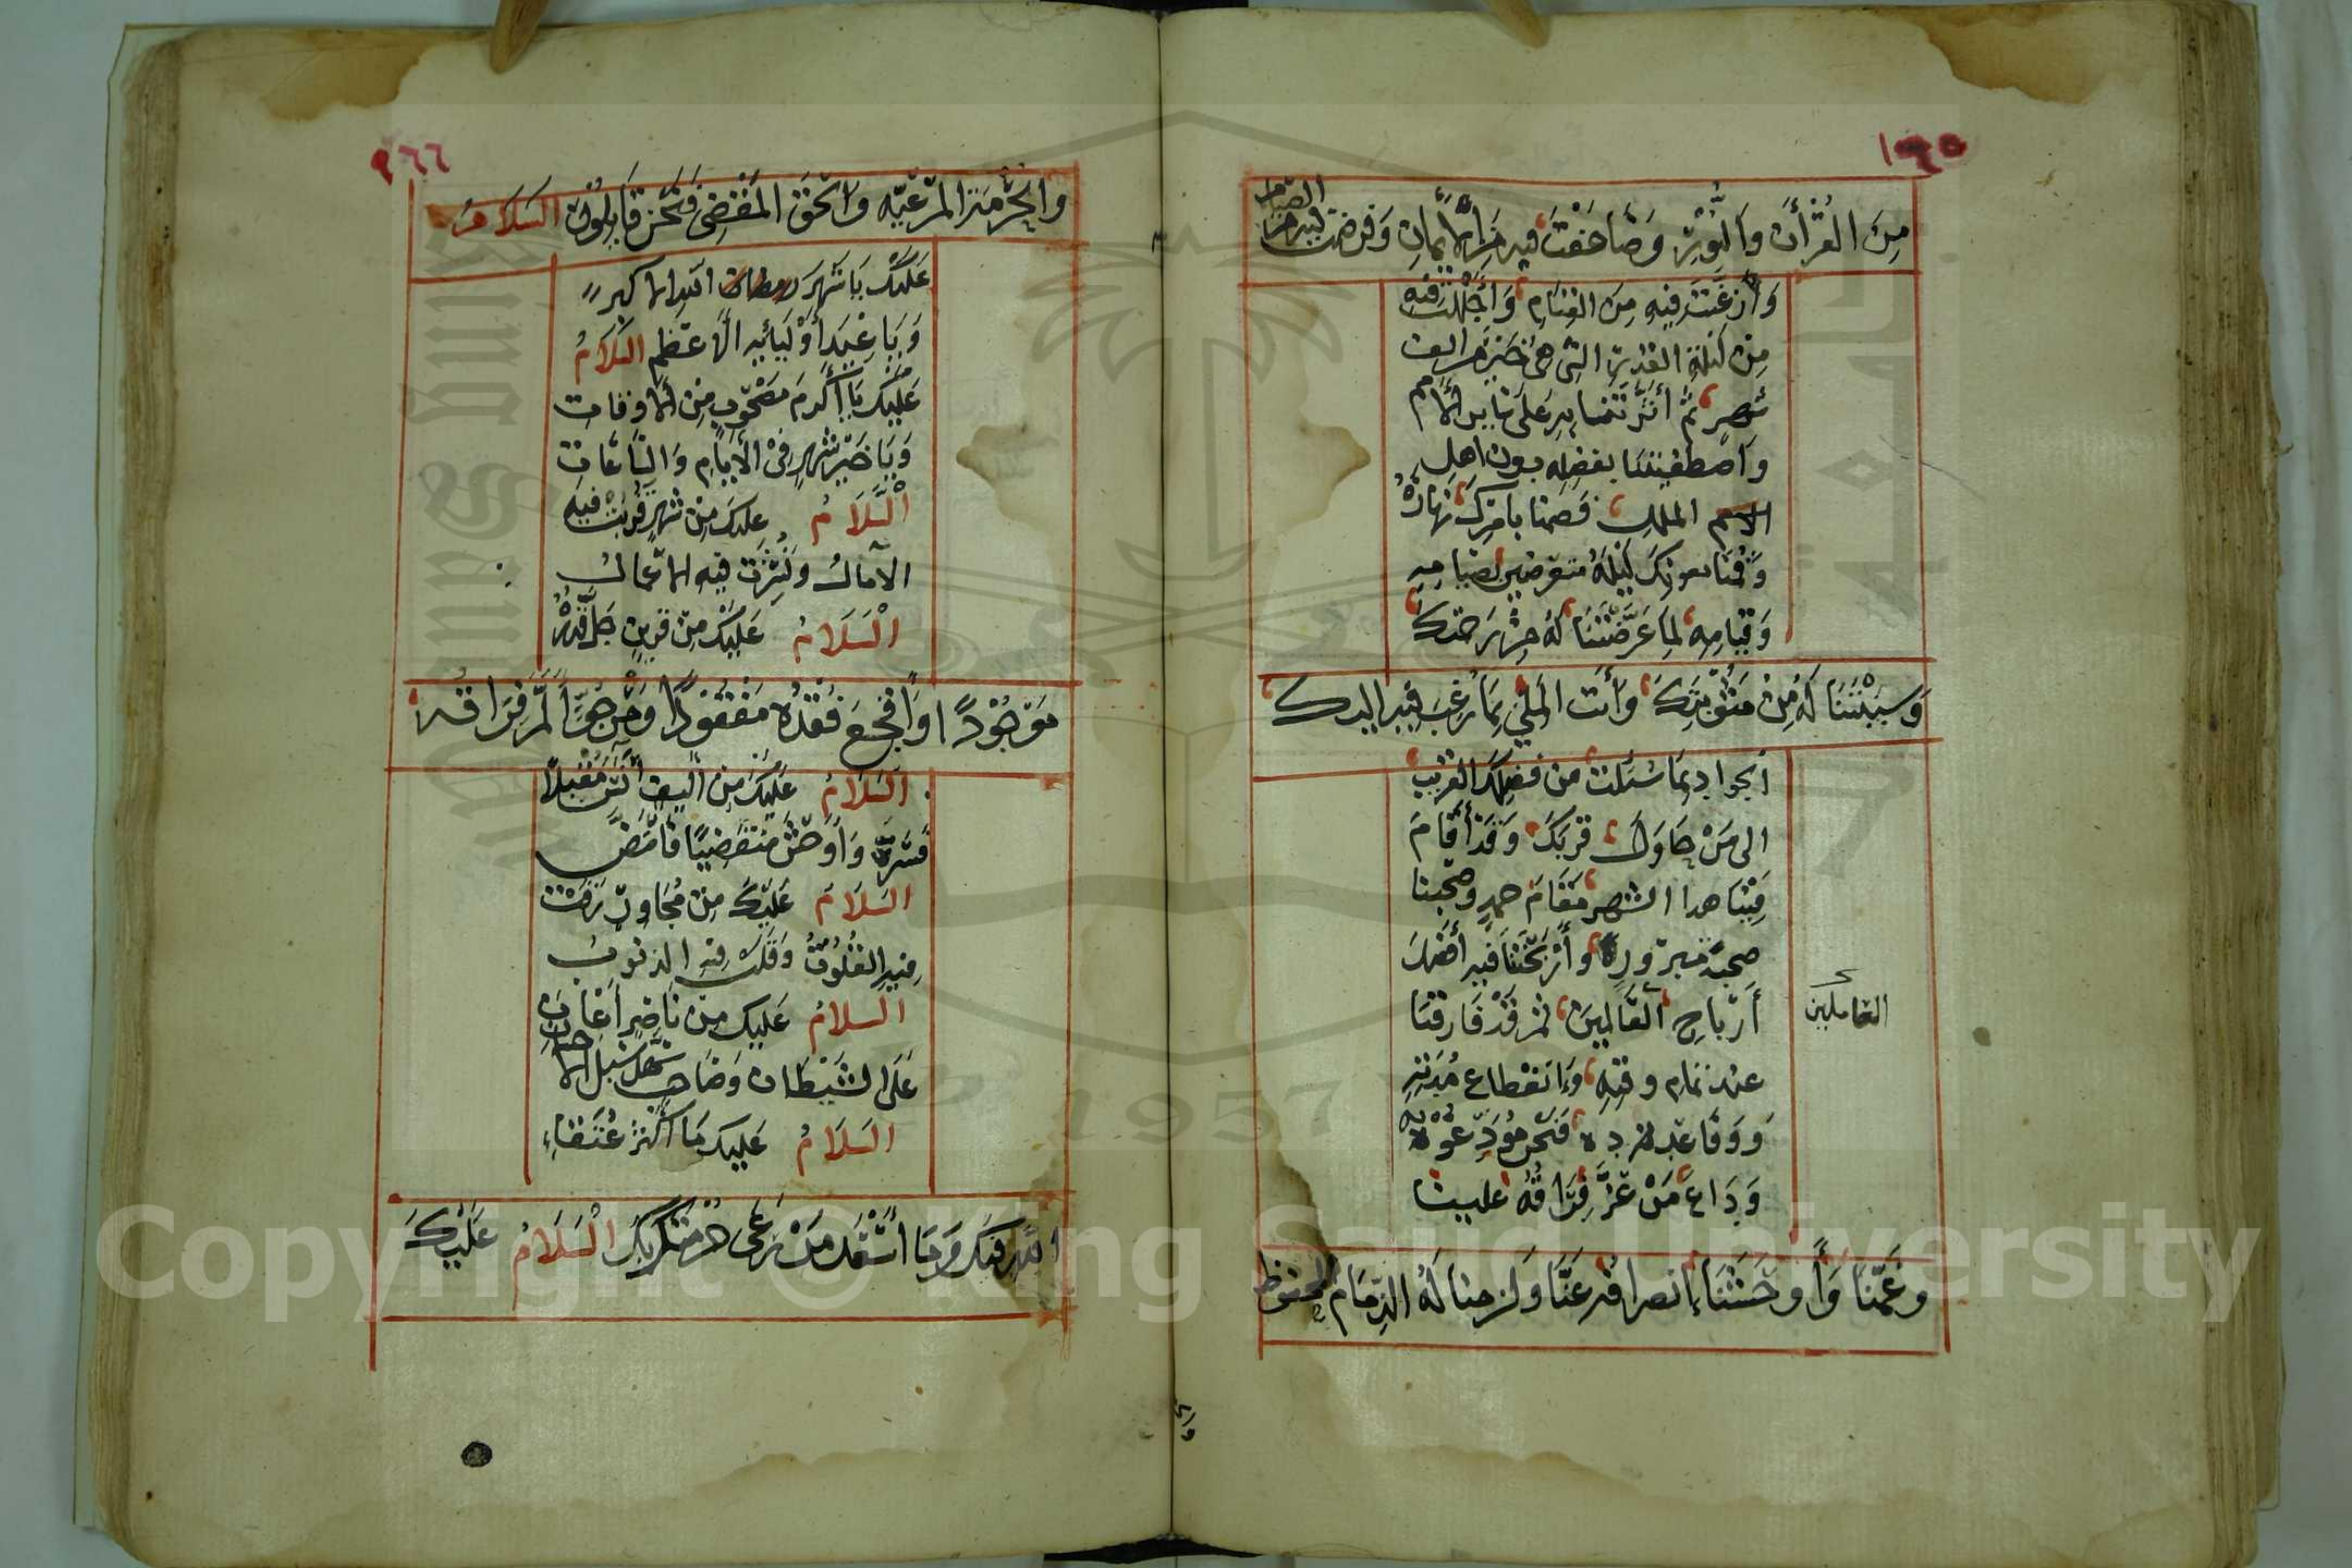 ١٦٥
مِنَ القُرْأنِ وَالنُّوْرِ وَضَاعَفْتَ فيه مِنَ الأِيْمَانِ وَفرضت فيه من الصيام
وَأرْغَبْتَ فِيهِ مِنَ القِيَامِ وَأجْلَلْتَ فيه
مِنْ لَيْلَةِ القَدْرِ الَّتِى هى خَيْرٌ مِن الف
شهرٍ ثُمَّ أثَرْتَنَا بِهِ عَلَى سَايرِ الأُمَمِ
وَاصْطَفَيْتَنَا بفَضْلِهِ دون اهلِ
الملل فَصُمنا بامْرِكَ نَهَارَهُ
وَقُمْنَا بعونِكَ لَيْلَهُ متعرّضين بصيامِهِ
وَقِيَامِهِ لِمَا عَرَّضْتَنَا لَهُ مِنْ رَحْمَتِكَ
وَسَبَّبْتَنَا لَهُ مِنْ مَثُوْبَتِكَ وَأنَت المَلِيُّ بِمَا رُغِبَ فِيْهِ اليك
الجواد بِمَا سُئِلْتَ من فضلِكَ القَرِيْبُ
الى مَنْ حَاوَلَ قربَكَ وَقَدْ أقَامَ
فِيْنَا هذا الشهر مَقَامَ حمدٍ وصَحِبنا
صُحْبَةَ مَبرُورٍ وأرْبَحَنَا فيه أفضَلَ
أرْبَاحِ العَالَمِينَ ثم قَدْ فَارقَنَا
العَاملِينَ
عند تمام وقتِهِ وَانقطاع مُدَّتِهِ
وَوَفَاءِ عدده فَنَحْنُ مُوَدِّعُوْهُ
وَدَاعَ مَنْ عَزَّ فِرَاقُهُ علينا
وغَمَّنَا وَأوْحَشَنَا انصرافُهُ عَنَّا وَلزمنا لَهُ الذِّمَامُ المحفوظ
١٦٦
والحُرْمَةُ المَرْعِيَّه وَالحَقُّ المَقْضِىُّ فَنَحْنُ قَايِلُوْنَ السَلَامُ
عَلَيْكَ يَا شَهْرَ الله الاكبر
وَيَا عِيْدَ أوْلِيَائِهِ الأعظَمِ السَّلَامُ
عَلَيْكَ يَا أكْرمَ مَصْحُوْبٍ مِنَ الأَوقاتِ
وَيَا خَيْرَ شَهْرٍ فِىْ الأَيَّامِ وَالسَّاعَاتِ
السَّلَامُ عليك مِنْ شَهْرٍ قَرُبَتْ فيهِ
الآمَالُ وَنُشِرَتْ فيهِ الأعْمَالُ
السَّلَامُ عَلَيْكَ مِنْ قَرِيْنٍ جَلَّ قَدْرُهُ
مَوْجُوْدًا وَأفْجَعَ فَقْدُهُ مَفْقُوْدًا وَمَرْجُوٍّ آلَمَ فِرَاقُهُ
السَّلَامُ عَلَيْكَ مِنْ اليفٍ أنَسَ مُقْبِلًا
فَسَرَّ وَأوْحَشَ مُنْقَضِيًا فَأمَضَّ
السَّلَامُ عَلَيْكَ مِنْ مُجَاوِرٍ رَقَّتْ
فِيْهِ القُلُوْبُ وَقَلَّتْ فِيْهِ الذنوبُ
السَّلَامُ عَلَيْكَ مِنْ نَاصِرٍ أعَانَ
عَلَى الشَيْطَان وَصَاحِبٍ سَهَّلَ سُبُلَ الاحسان
السَّلَامُ عَلَيكَ مَا أكْثَرَ عُتَقَاءَ
اللهِ فِيْكَ وَمَا أسْعَدَ مَنْ رَعَى حُرْمَتَكَ بِكَ السَّلَامُ عَلَيْكَ
Copyright © King Saud University
1957